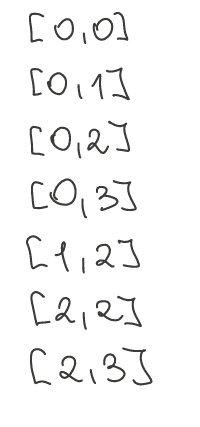 [0,0]
[0,1]
[0,2]
[0,3]
[1,2]
[2,2]
[2,3]